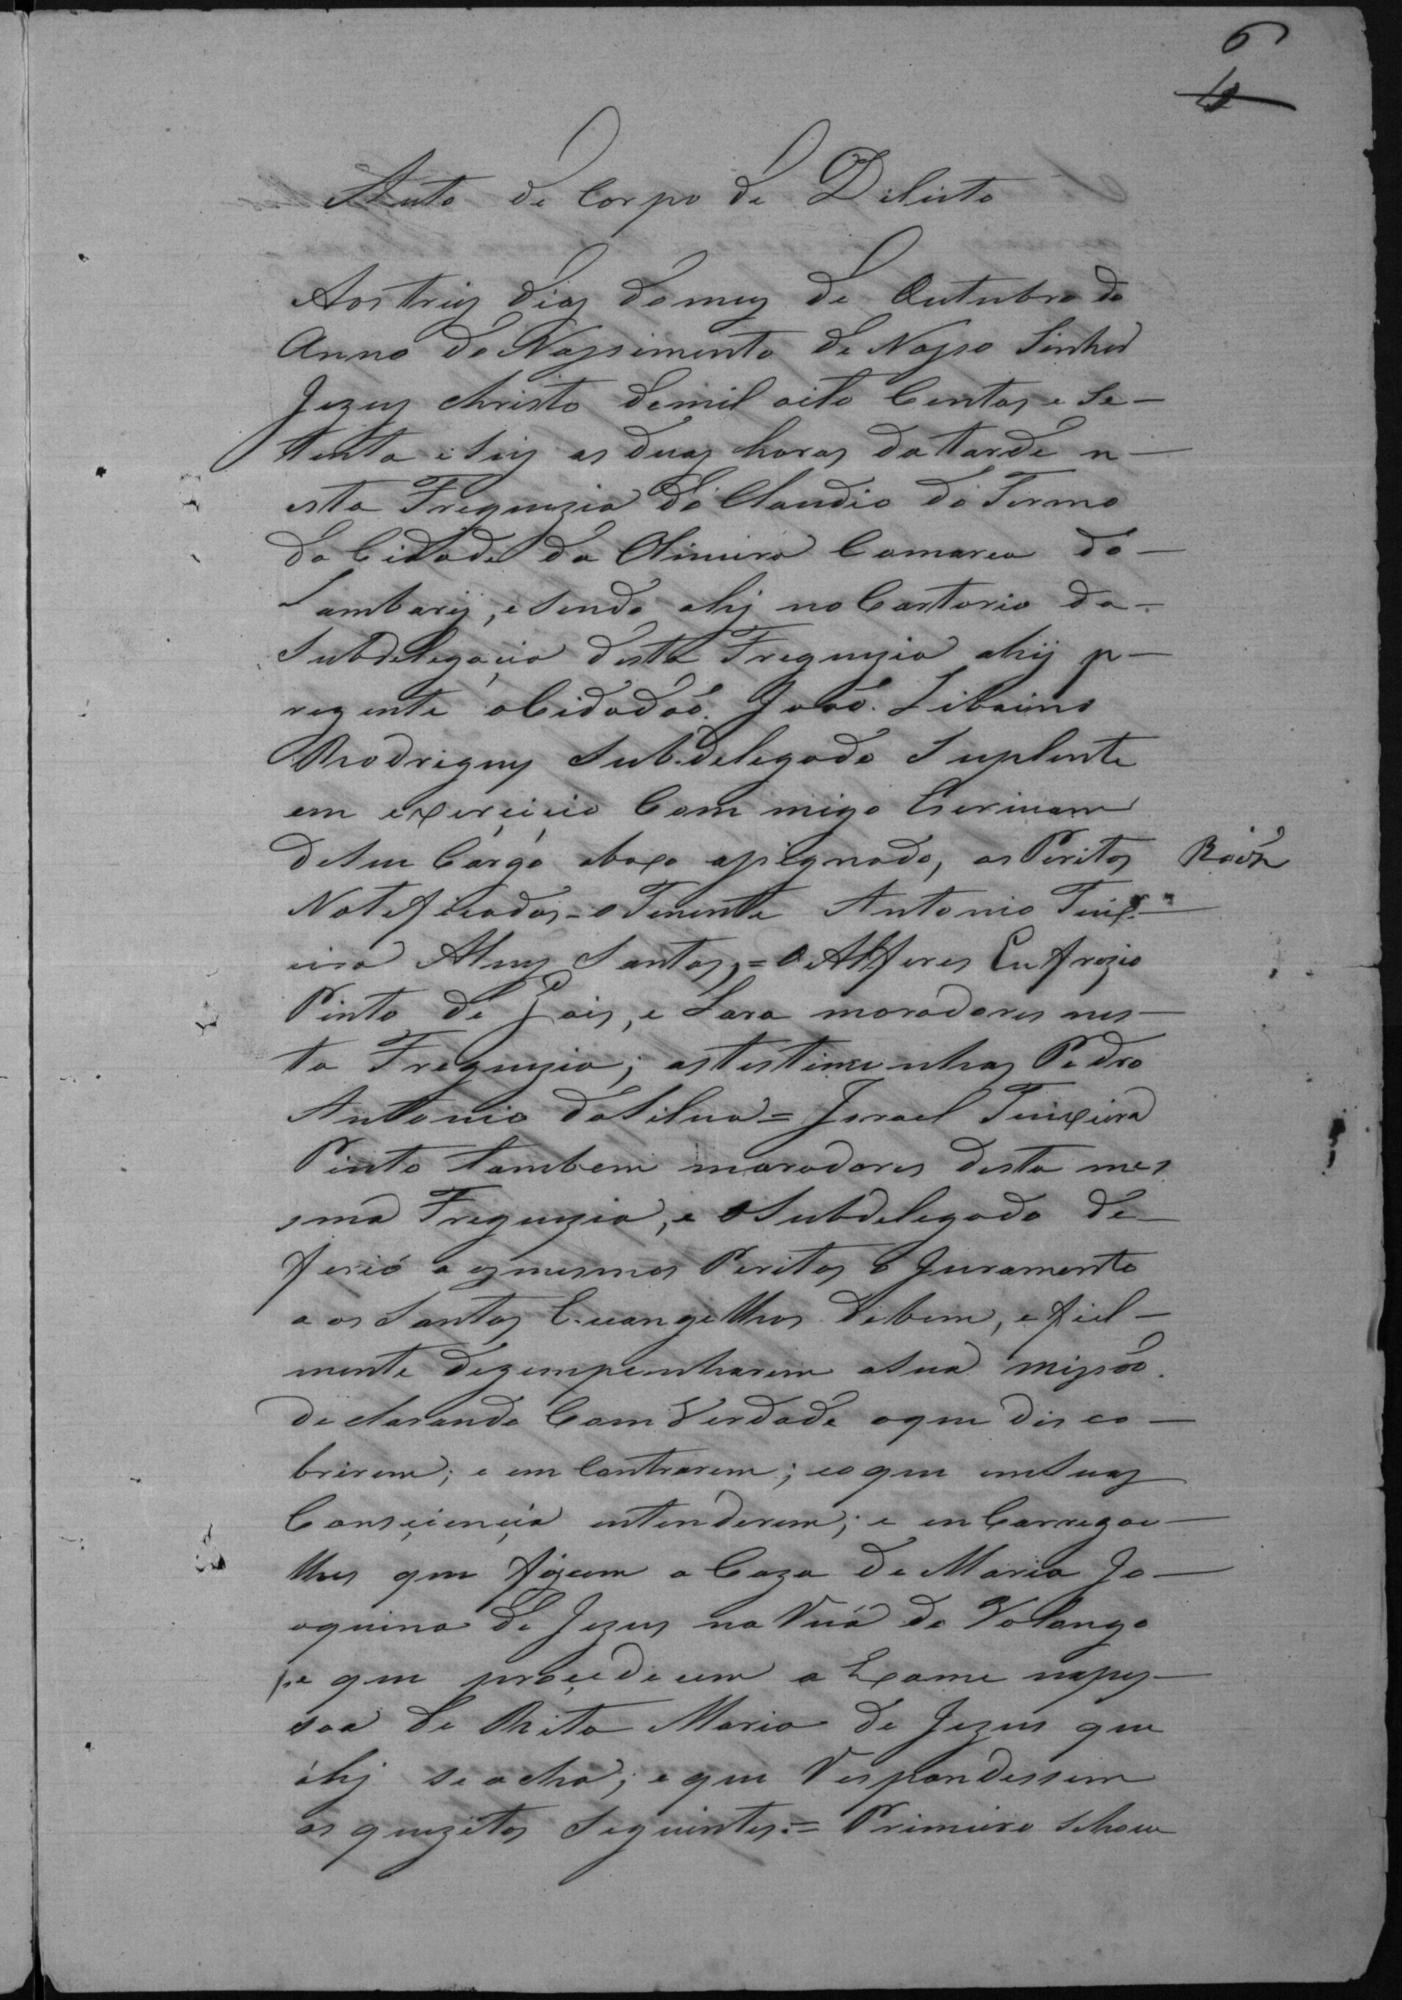 6
Auto de Corpo de Delicto
Aos treis dias do mez de Outubro do
Anno do Nassimento de Nosso Senhor
Jezus Christo de mil oito Centos e Se-
tenta e Seis as duas horas da tarde n-
esta Freguezia do Claudio do Termo
da Cidade da Oliveira Comarca do-
Lambarij, e sendo ahj no Cartorio da
Subdelegacia desta Freguezia ahij p-
rezente o Cidadão João Libaino
Rodrigues Subdelegado Suplente
em exerçicio Com migo Escrivam
de Seu Cargo abaxo assignado, os Peritos
Notificados = o Tenente Antonio Teix-
eira Alves Santos, = O Alferes Eufrazio
Pinto de Gois, e Lara moradores nes-
ta Freguezia; as testimunhas Pedro
Antonio da Silva = Israel Teixeira
Pinto tambem moradores desta mes
sma Freguezia, e o Subdelegado de-
ferió a os mesmos Peritos o Juramento
a os Santos Evangelhos de bem, e fiel-
mente dezempenharem a Sua missão.
declarando Com Verdade o que disco-
brirem; e em Contrarem; e o que em Suas
Consçiençia entenderem; e en Carregou-
lhes que fòçem a Caza de Maria Jo-
aquina de Jezus na Ruá do
e que proçedecem a Exame na pes-
soa de Rita Maria de Jezus que
ahj se acha; e que Respondessem
os quezitos Seguintes: = Primeiro Se houve